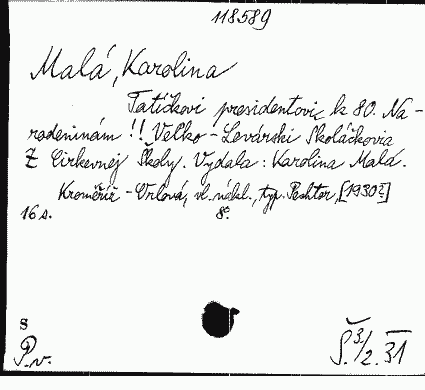 118589
Malá, Karolina
Tatíčkovi presidentovi k 80. Na-
rodeninám!! Veľko-Levárski Školáčkovia
Z Cirkevnej Školy. Vydala: Karolina Malá.
Kroměříž - Vrlová, vl. nákl., typ. Pechter, [1930?]
16 s. 8°.
S
P.v. Š. 3/2. 31